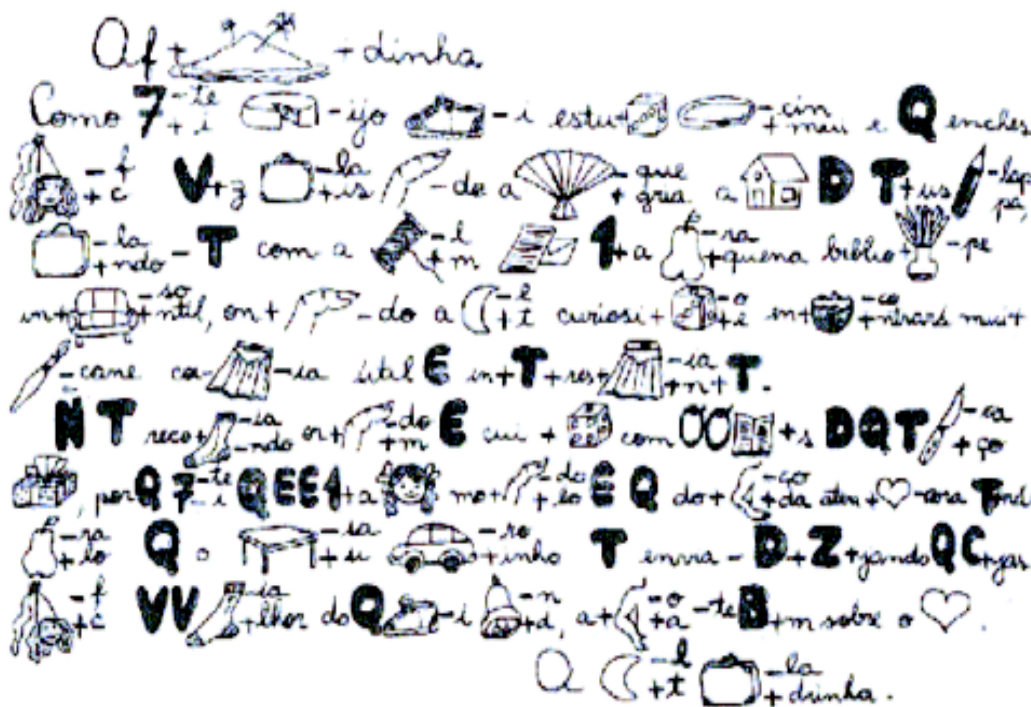 Af+ +dinha
Como 7 -te +i -ijo -i estu+ -cin +meu e Q enches
-f +c V+z -la +is -do a -que +gria a D T+us -lap pá,
-la +ndo -T com a -l +m 1+a -ra +quena biblio+ -pe
in+ -so +ntil, on+ -do a -l +t curiosi+ -o +e en+ -co +ntrará muit+
-cane coi -ia útil E in+T+res+ -ia +n+T.
Ñ T reco+ -ia -ndo on+ -do +m E cui+ com +s D Q T -ca +ço
, por Q 7 -te -i Q E E 1+a mo+ -do +lo E Q do+ -ço +da aten+ -cora T nd
-ra +lo Q o -sa +u -ro +inho T envia-D+Z+jando Q C+jas
-f +c V V -ia +lhor do Q -i -n +d, a+ -o +a -te B+m sobre o .
A -l +t -la +drinha.